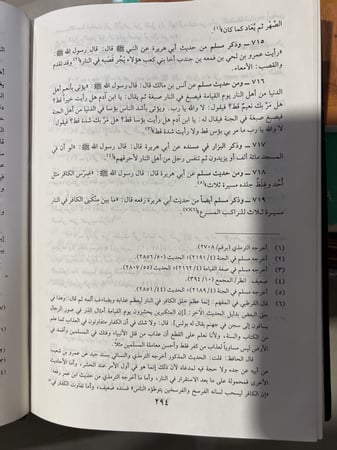 الصَّهْر ثم يُعاد كما كان»(١).
٧١٥ ــ وذكر مسلم من حديث أبي هريرة عن النبي ﷺ قال: قال رسول الله ﷺ:
«رأيت عمرو بن لحي بن قمعة بن خندف أبا بني كعب هؤلاء يَجُر قُصْبه في النار»(٢) وقد تقدم
والقصب: الأمعاء.
٧١٦ ــ ومن حديث أنس بن مالك قال: قال رسول الله ﷺ: «يؤتى بأنعم أهل
الدنيا من أهل النار يوم القيامة فيصبغ في النار صبغة ثم يقال: يا ابن آدم هل رأيت خيراً قط؟
هل مَرَّ بك نعيمٌ قط؟ فيقول: لا والله يا رب. ويؤتى بأشد الناس بؤساً في الدنيا من أهل الجنة
فيصبغ صبغة في الجنة فيقال له: يا ابن آدم هل رأيت بؤساً قط؟ هل مَرَّ بك شدة قط؟ فيقول:
لا والله يا رب ما مر بي بؤس قط ولا رأيت شدة قط»(٣).
٧١٧ ــ وذكر البزار في مسنده عن أبي هريرة: قال: قال رسول الله ﷺ: «لو أن في
المسجد مائة ألف أو يزيدون ثم تنفس رجل من أهل النار لأحرقهم»(٤).
٧١٨ ــ ومن حديث مسلم عن أبي هريرة: قال: قال رسول الله ﷺ: «ضِرْس الكافر مثل
أُحُد وغِلظُ جلده مسيرة ثلاث»(٥).
٧١٩ ــ وذكر مسلم أيضاً من حديث أبي هريرة رفعه قال: «ما بين مَنْكِبَي الكافر في النار
مسيرة ثلاث للراكب المسرع»(٦)(٧).
(١) أخرجه الترمذي (برقم/ ٢٧٠٨).
(٢) أخرجه مسلم في الجنة (٢١٩١/٤) الحديث (٢٨٥٦/٥٠).
(٣) أخرجه مسلم في صفة القيامة (٢١٦٢/٤) الحديث (٢٨٠٧/٥٥).
(٤) ضعيف. انظر/ المجمع (٣٩٤/١٠).
(٥) أخرجه مسلم في الجنة (٢١٨٩/٤) الحديث
(٦) أخرجه مسلم في الجنة (٢١٨٩/٤) الحديث
(٧) قال القرطبي في المفهم: إنما عظم خلق الكافر في النار ليعظم عذابه ويضاعف ألمه ثم قال: وهذا في
حق البعض بدليل الحديث الآخر: إن المتكبرين يحشرون يوم القيامة أمثال الذر في صور الرجال
يساقون إلى سجن في جهنم يقال له بولس). قال: ولا شك في أن الكفار متفاوتون في العذاب كما علم
من الكتاب والسنة، ولأنا نعلم على القطع أن عذاب من قتل الأنبياء وفتك في المسلمين وأفسد في
الأرض ليس مساوياً لعذاب من كفر فقط وأحسن معاملة المسلمين مثلاً.
قال الحافظ: قلت: الحديث المذكور أخرجه الترمذي والنسائي بسند جيد عن عمرو بن شعيب
عن أبيه عن جده ولا حجة فيه لمدعاه لأن ذلك إنما هو في أول الأمر عند الحشر، وأما الأحاديث
الأخرى فمحمولة على ما بعد الاستقرار في النار، وأما ما أخرجه الترمذي من حديث ابن عمر رفعه:
(إن الكافر ليسحب لسانه الفرسخ والفرسخين يتوطؤه الناس) فسنده ضعيف، وأما تفاوت الكفار في
٢٩٤